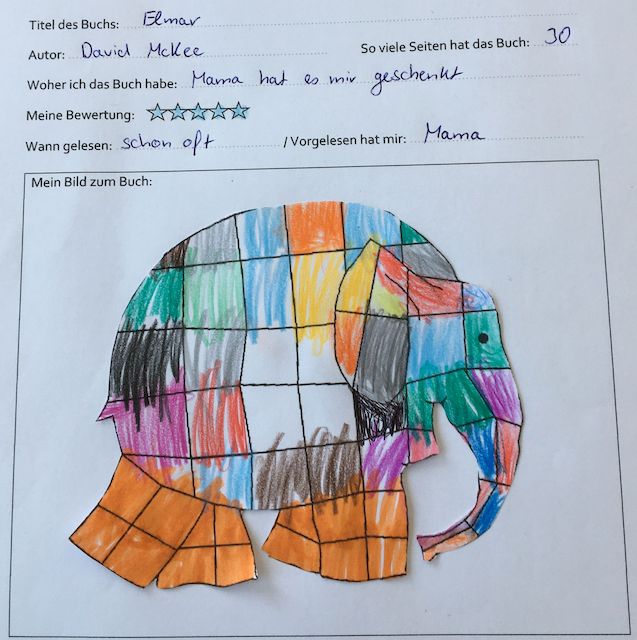 Titel des Buchs: Elmar
Autor: David McKee So viele Seiten hat das Buch: 30
Woher ich das Buch habe: Mama hat es mir geschenkt
Meine Bewertung:
Wann gelesen: schon oft / Vorgelesen hat mir: Mama
Mein Bild zum Buch: